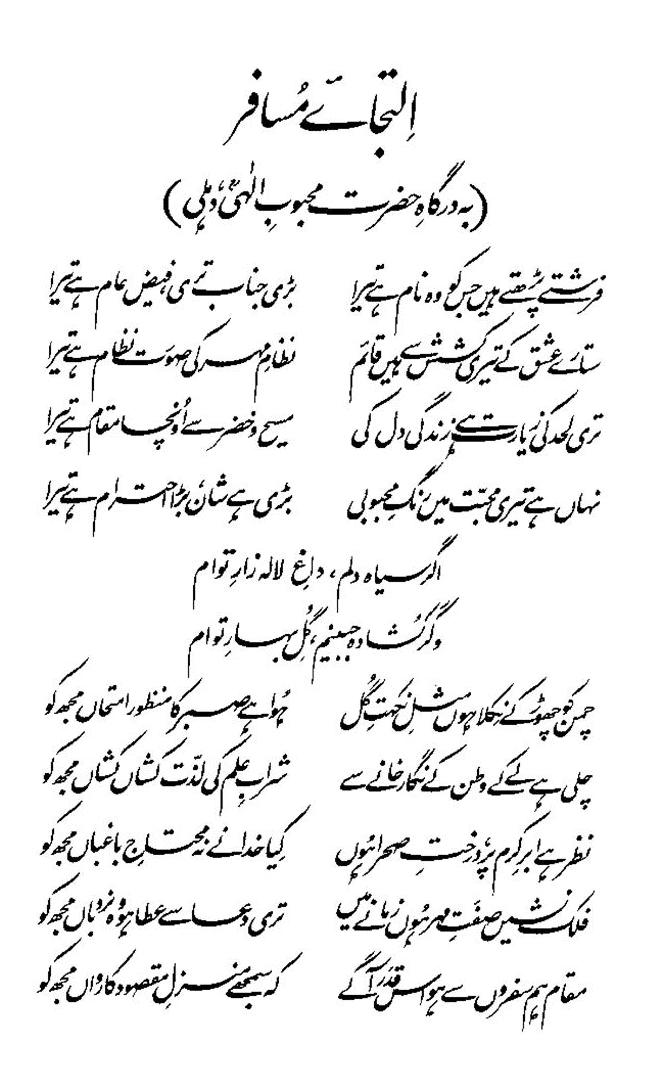 اِلتجائے مُسافر
(بہ درگاہِ حضرت محبوبِ الٰہیؒ، دہلی)
فرشتے پڑھتے ہیں جس کو وہ نام ہے تیرا بڑی جناب تری، فیض عام ہے تیرا
ستارے عشق کے تیری کشش سے ہیں قائم نظامِ مہر کی صورت نظام ہے تیرا
تری لحد کی زیارت ہے زندگی دل کی مسیح و خضر سے اُونچا مقام ہے تیرا
نہاں ہے تیری محبّت میں رنگِ محبوبی بڑی ہے شان، بڑا احترام ہے تیرا
اگر سیاہ دلم، داغِ لالہ زارِ توام
وگر کُشادہ جبینم، گُلِ بہارِ توام
چمن کو چھوڑ کے نِکلا ہوں مثلِ نکہتِ گُل ہُوا ہے صبر کا منظور امتحاں مجھ کو
چلی ہے لے کے وطن کے نگار خانے سے شرابِ علم کی لذّت کشاں کشاں مجھ کو
نظر ہے ابرِ کرم پر، درختِ صحرا ہُوں کِیا خدا نے نہ محتاجِ باغباں مجھ کو
فلک نشیں صفَتِ مہر ہُوں زمانے میں تری دعا سے عطا ہو وہ نردباں مجھ کو
مقام ہم سفروں سے ہو اس قدَر آگے کہ سمجھے منزلِ مقصود کارواں مجھ کو